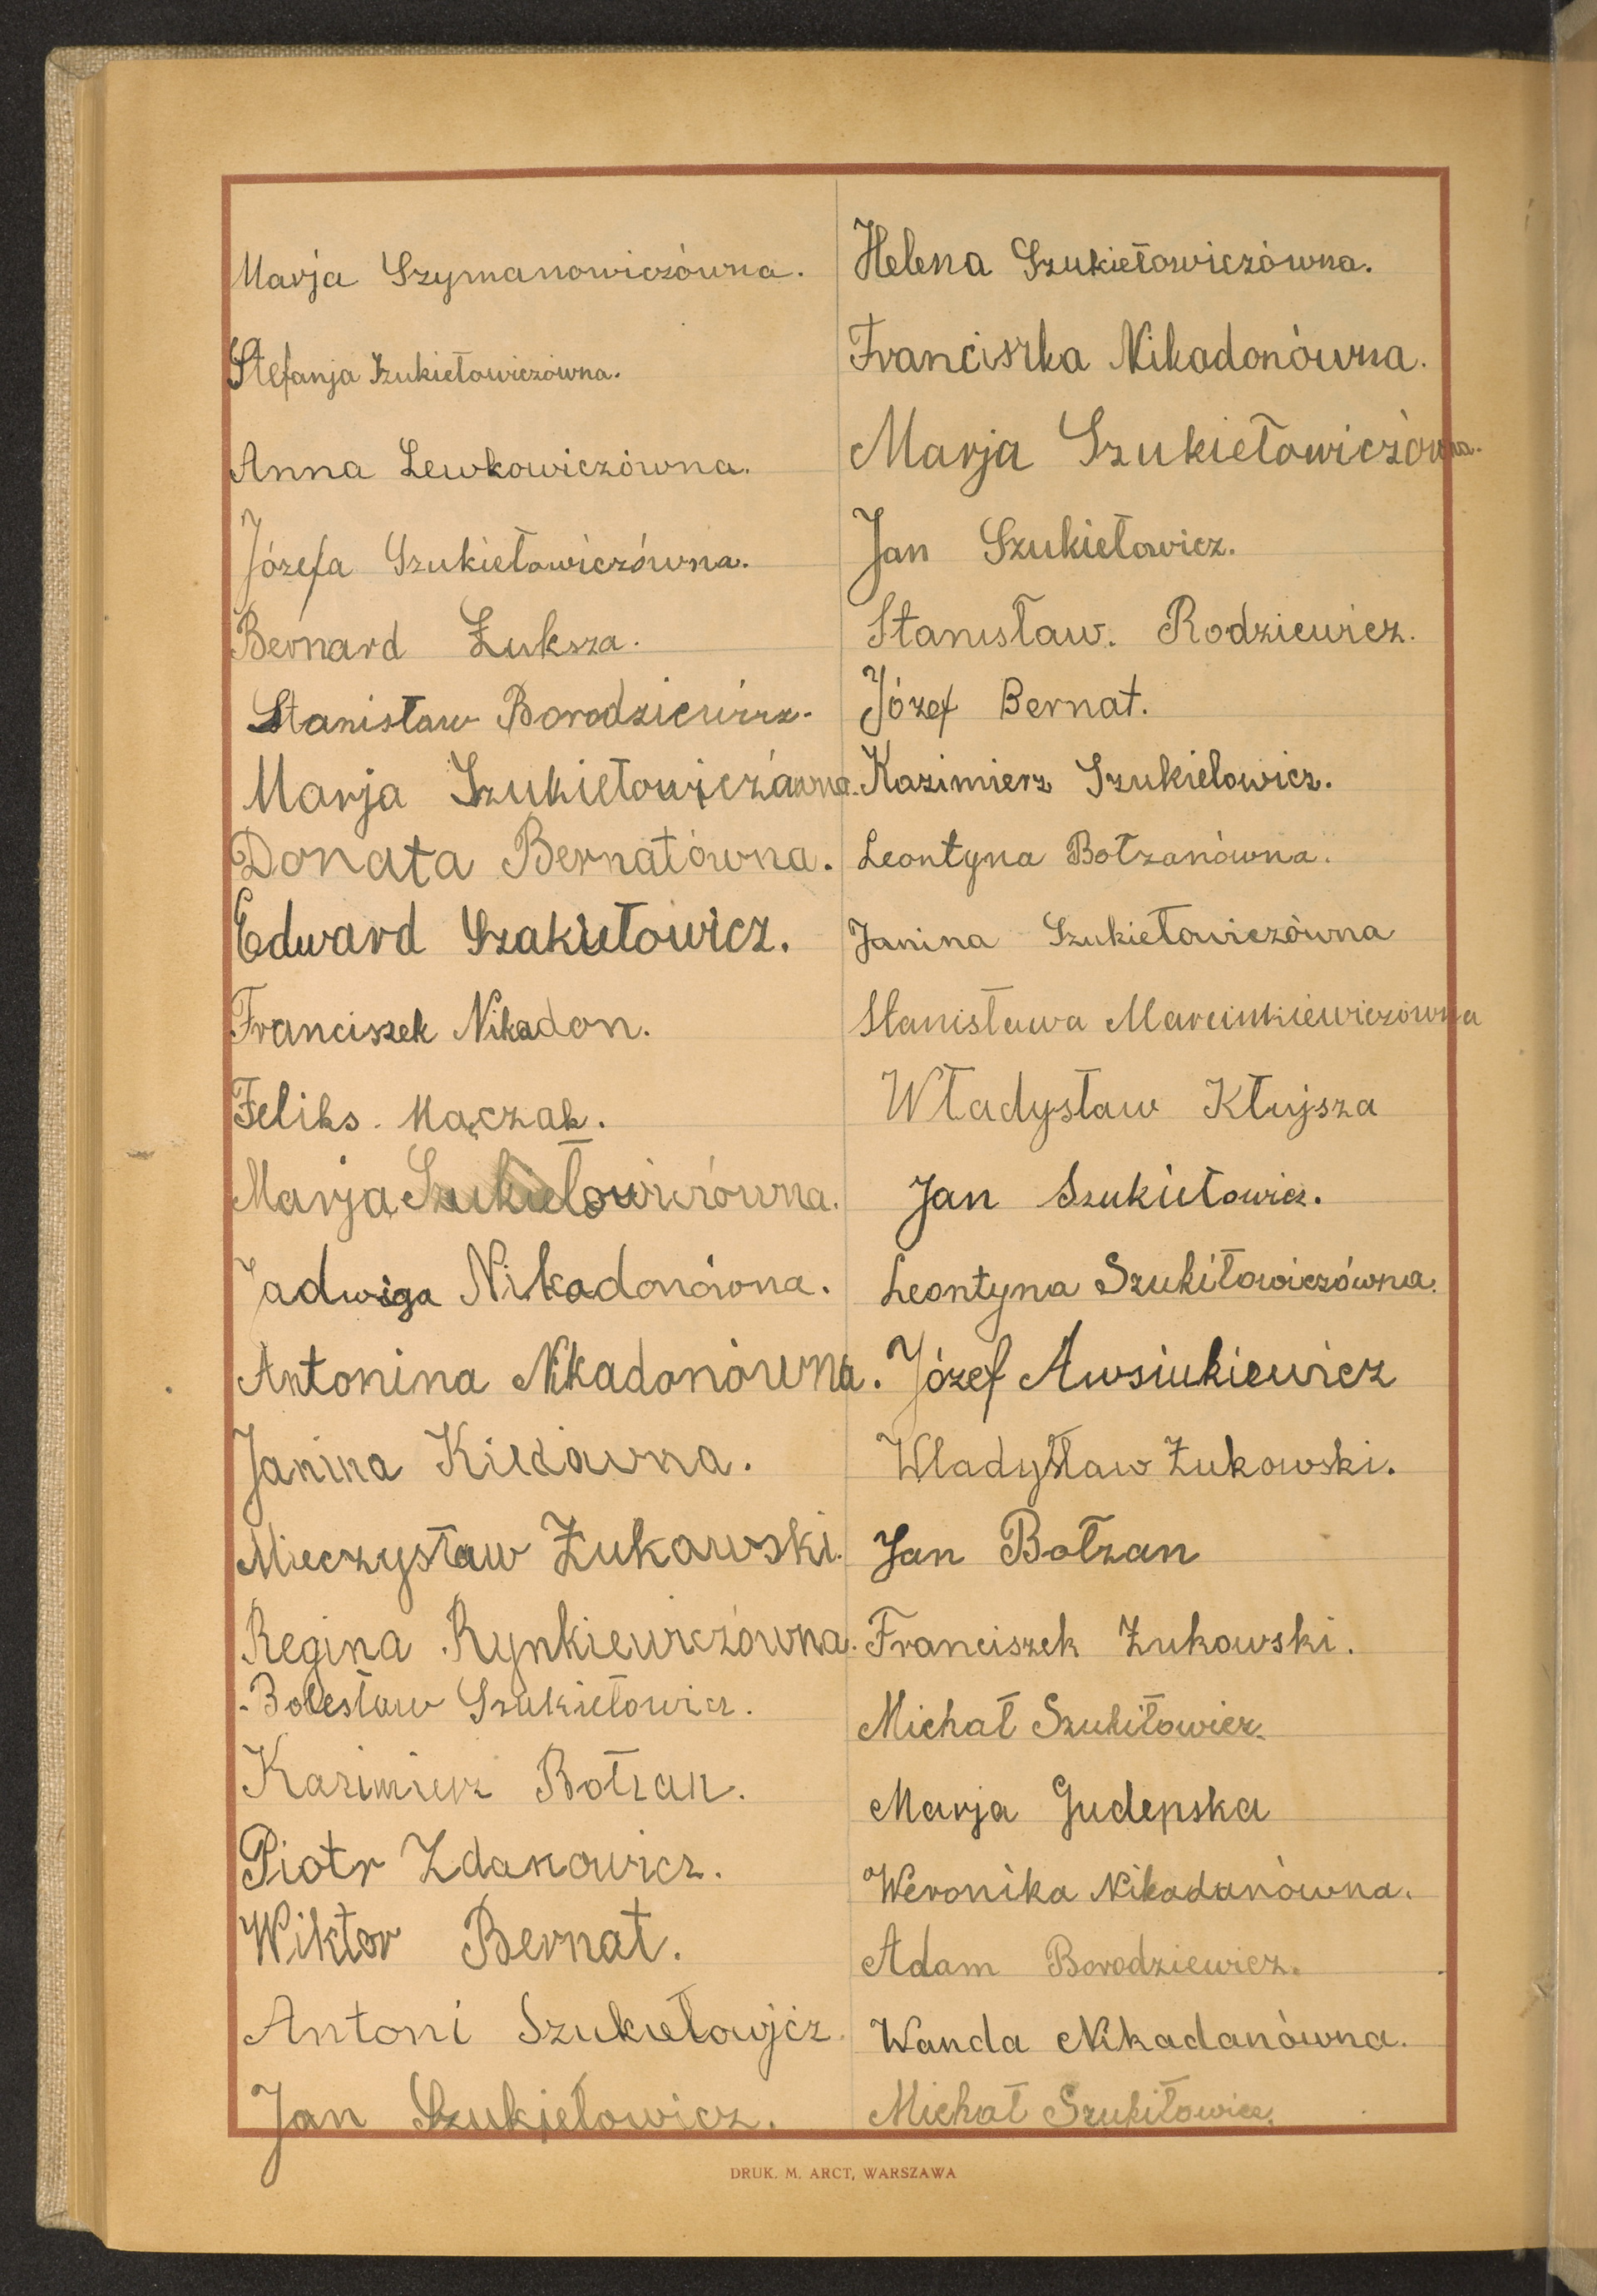 Marja Szymanowiczówna.
Stefanja Szukiełowiczówna.
Anna Lewkowiczówna.
Józefa Szukiełowiczówna.
Bernard Łuksza.
Stanisław Borodziewicz.
Marja Szukiełowiczówna.
Donata Bernatówna.
Edward Szakiełowicz.
Franciszek Nikadon.
Feliks Mączak.
Marja Szukiełowiczówna.
Jadwiga Nikadonówna.
Antonina Nikadonówna.
Janina
Mieczysław Żukowski.
Regina Rynkiewiczówna.
Bolesław Szukiełowicz.
Kazimierz Bołzan.
Piotr Zdanowicz.
Wiktor Bernat.
Antoni Szukiełowicz.
Jan Szukiełowicz.
Helena Szukiełowiczówna.
Franciszka Nikadonówna.
Marja Szukiełowiczówna.
Jan Szukiełowicz.
Stanisław. Rodziewicz.
Józef Bernat.
Kazimierz Szukielowicz.
Leontyna Bołzanówna.
Janina Szukiełowiczówna
Stanisława Marcinkiewiczówna
Władysław Kłujsza
Jan Szukiełowicz.
Leontyna Szukiłowiczówna.
Józef Awsiukiewicz
Władysław Żukowski.
Jan Bołzan
Franciszek Żukowski.
Michał Szukiłowicz.
Marja
Weronika Nikadanówna.
Adam Borodziewicz.
Wanda Nikadanówna.
Michał Szukiłowicz.
DRUK. M. ARCT, WARSZAWA